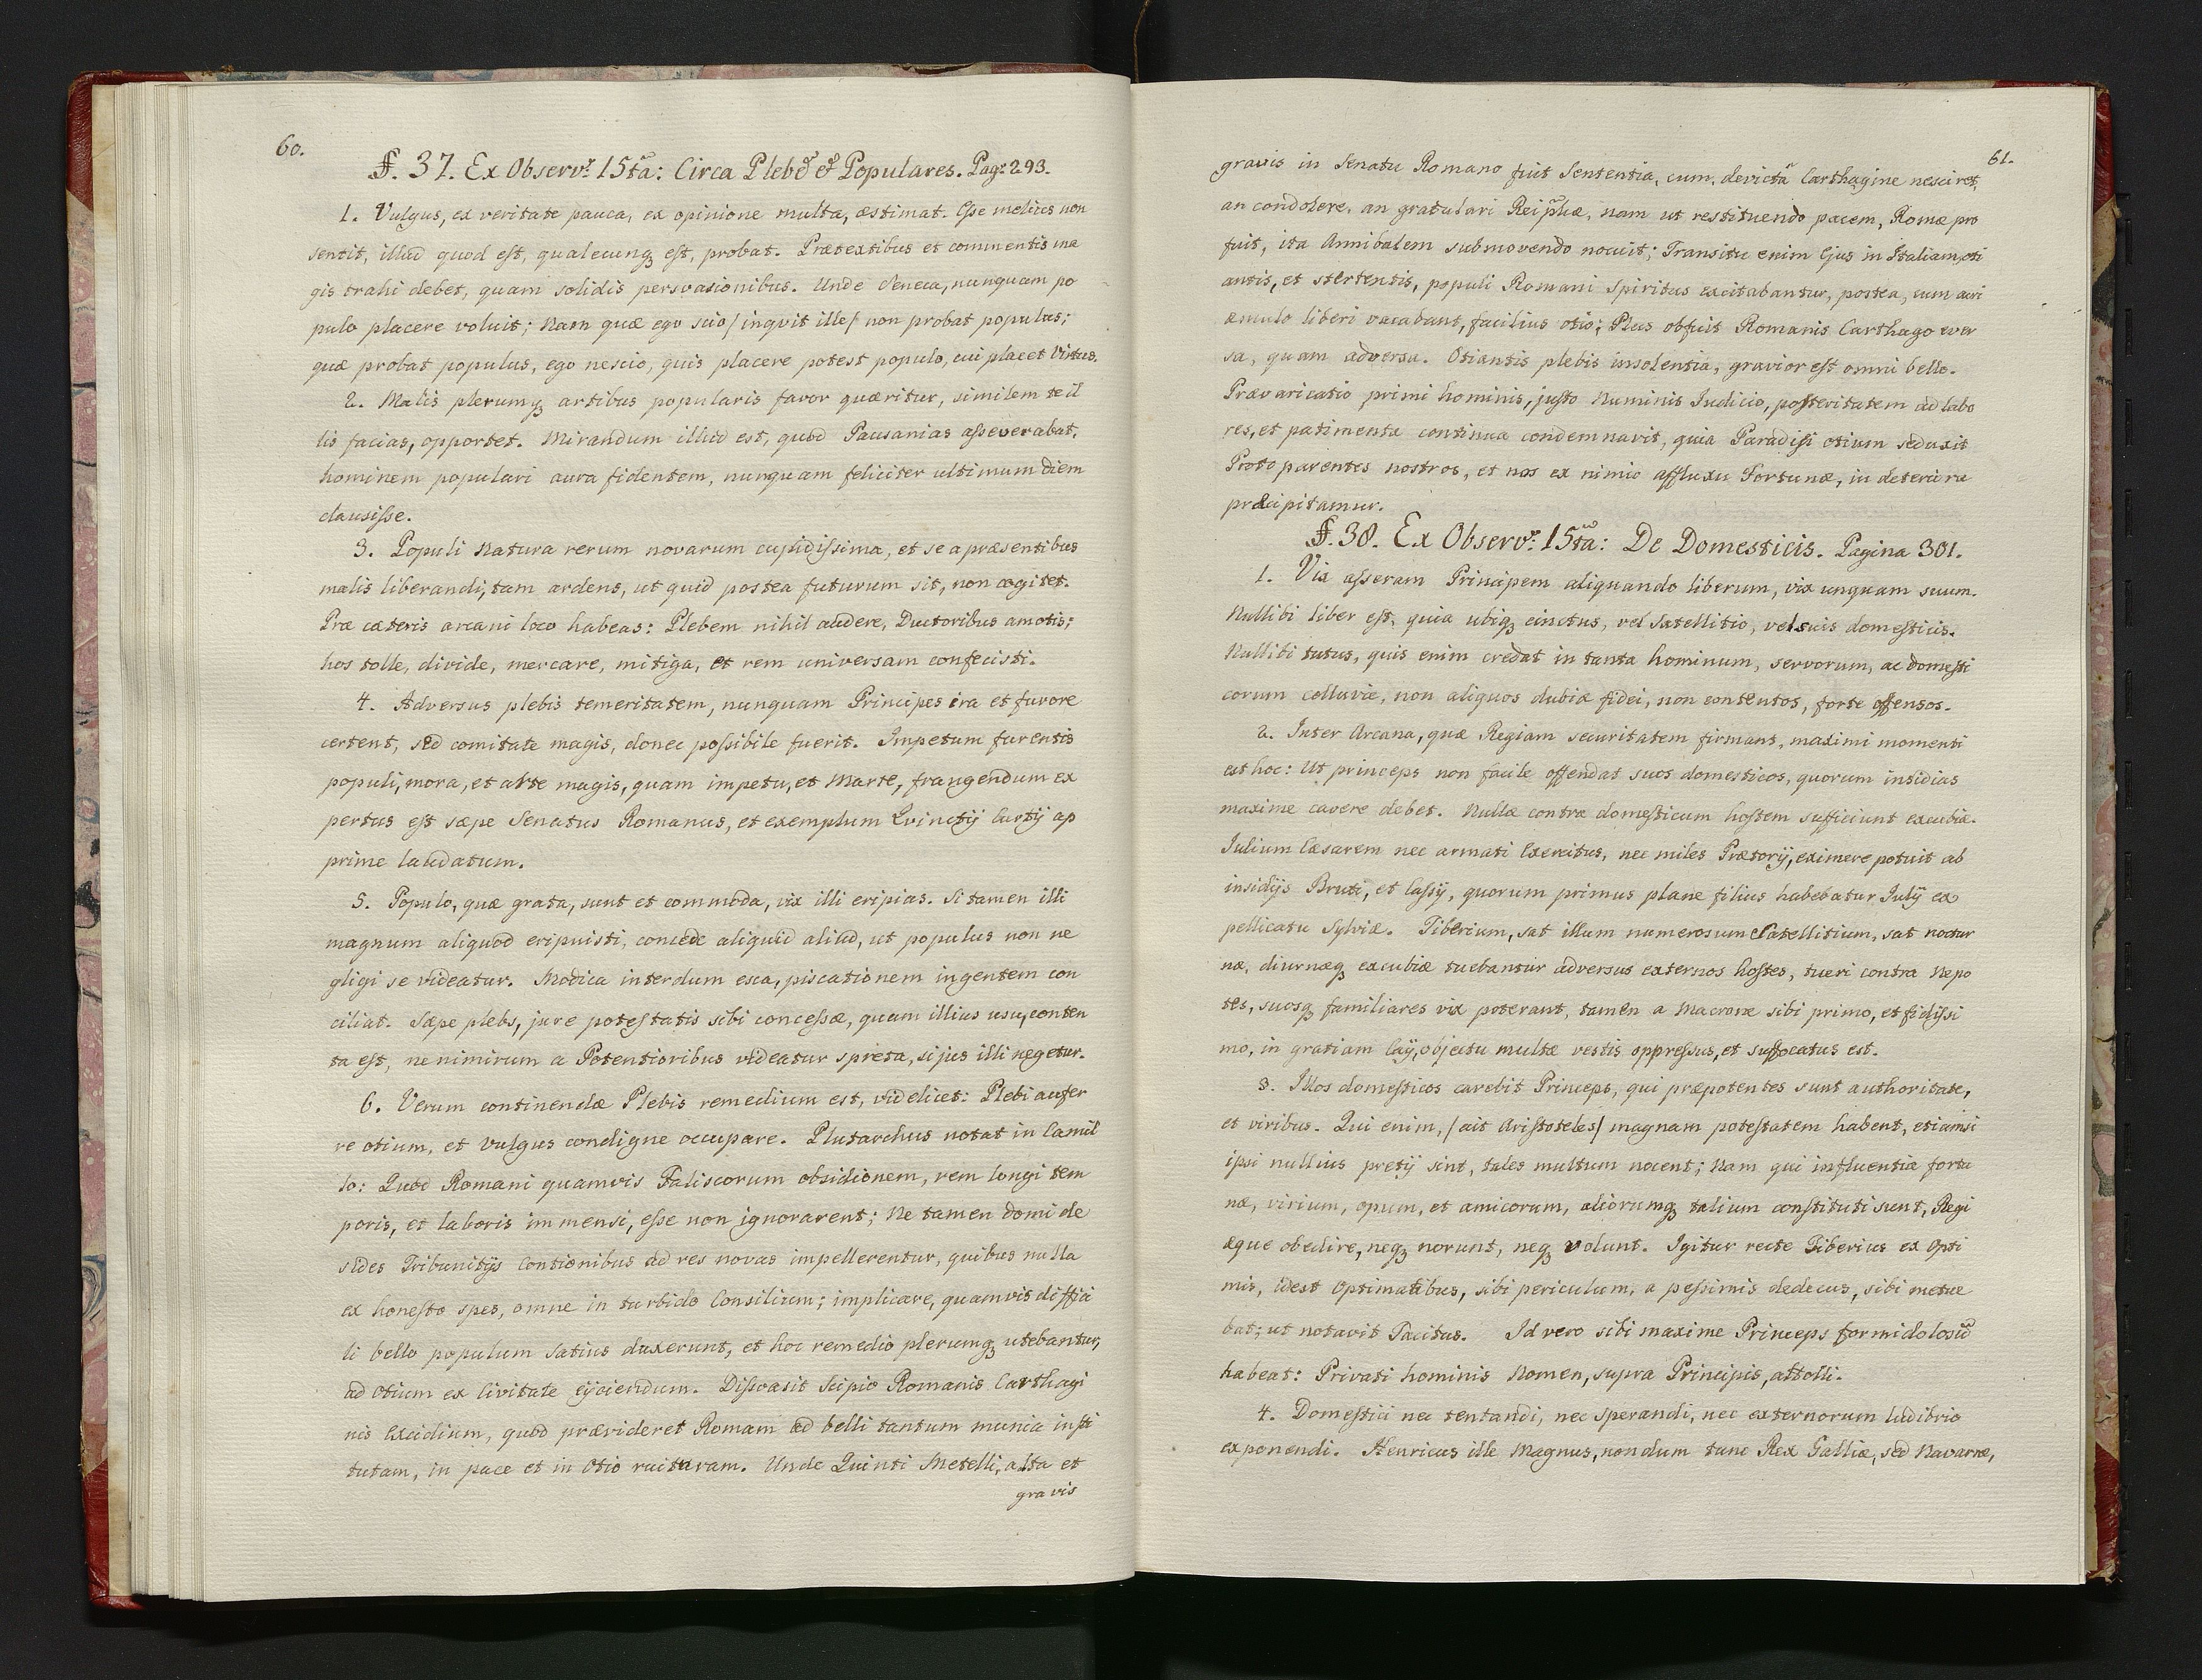 60.
§. 37. Ex Observ: 15ta: Circa Plebē et Populares. Pag: 293.
1. Vulgus, ex veritate pauca, ex opinione multa, æstimat. Esse melius non
sentit, illud quod est, qualecunq; est, probat. Prætextibus et commentis ma
gis trahi debet, quam solidis persvasionibus. Unde Seneca, nunquam po
pulo placere voluit; Nam quæ ego scio / inqvit ille / non probat populus;
quæ probat populus, ego nescio, quis placere potest populo, cui placet Virtus.
2. Malis plerumq; artibus popularis favor quæritur, similem te il
lis facias, opportet. Mirandum illud est, quod Pausanias asseverabat,
hominem populari aura fidentem, nunquam feliciter ultimum diem
clausisse.
3. Populi Natura rerum novarum cupidissima, et se a præsentibus
malis liberandi, tam ardens, ut quid postea futurum sit, non cogitet.
Præ cæteris arcani loco habeas: Plebem nihil audere, Ductoribus amotis;
hos tolle, divide, mercare, mitiga, et rem universam confecisti.
4. Adversus plebis temeritatem, nunquam Principes ira et furore
certent, sed comitate magis, donec possibile fuerit. Impetum furentis
populi, mora, et arte magis, quam impetu, et Marte, frangendum ex
pertus est sæpe Senatus Romanus, et exemplum Qvinctij Curtij ap
prime laudatum.
5. Populo, quæ grata, sunt et commoda, vix illi eripias. Si tamen illi
magnum aliquod eripuisti, concede aliquid aliud, ut populus non ne
gligi se videatur. Modica interdum esca, piscationem ingentem con
ciliat. Sæpe plebs, jure potestatis sibi concessæ, quam illius usu, conten
ta est, ne nimirum a Potentioribus videatur spreta, si jus illi negetur.
6. Verum continendæ Plebis remedium est, videlicet: Plebi aufer
re otium, et vulgus condigne occupare. Plutarchus notat in Camil
lo: Quod Romani quamvis Faliscorum obsidionem, rem longi tem
poris, et laboris immensi, esse non ignorarent; Ne tamen domi de
sides Tribunitijs Contionibus ad res novas impellerentur, quibus nulla
ex honesto spes, omne in turbido Consilium; implicare, quamvis diffici
li bello populum satius duxerunt, et hoc remedio plerumq; utebantur,
ad otium ex Civitate eijciendum. Dissvasit Scipio Romanis Carthagi
nis Excidium, quod prævideret Romam ad belli tantum munia insti
tutam, in pace et in Otio ruituram. Unde Quinti Metelli, alta et
gravis
61.
gravis in Senatu Romano fuit Sententia, cum, devictā Carthagine nesciret,
an condolere, an gratulari Reipłicæ, nam ut restituendo pacem, Romæ pro
fuit, ita Annibalem submovendo nocuit; Transitu enim Ejus in Italiam, oti
antis, et stertentis, populi Romani Spiritus excitabantur, postea, cum acri
æmulo liberi vacabant, facilius otio; Plus obfuit Romanis Carthago ever
sa, quam adversa. Otiantis plebis insolentia, gravior est omni bello.
Prævaricatio primi hominis, justo Numinis Judicio, posteritatem ad labo
res, et patimenta continua condemnavit, quia Paradisi otium seduxit
Protoparentes nostros, et nos ex nimio affluxu Fortunæ, in deteriora
præcipitamur.
§. 38. Ex Observ: 15ta: De Domesticis. Pagina 301.
1. Vix asseram Principem aliquando liberum, vix unquam suum.
Nullibi liber est, quia ubiq; cinctus, vel Satellitio, vel suis domesticis.
Nullibi tutus, quis enim credat in tanta hominum, servorum, ac domesti
corum colluvie, non aliquos dubiæ fidei, non contentos, forte offensos.
2. Inter Arcana, quæ Regiam securitatem firmant, maximi momenti
est hoc: Ut princeps non facile offendat suos domesticos, quorum insidias
maxime cavere debet. Nullæ contra domesticum hostem sufficiunt excubiæ.
Iulium Cæsarem nec armati Exercitus, nec miles Prætorij, eximere potuit ab
insidijs Bruti, et Cassij, quorum primus plane filius habebatur Iulij ex
pellicatu Sylviæ. Tiberium, sat illum numerosum Satellitium, sat noctur
næ, diurnæq; excubiæ tuebantur adversus externos hostes, tueri contra Nepo
tes, suosq; familiares vix poterant, tamen a Macrone sibi primo, et fidissi
mo, in gratiam Caij, objectu multæ vestis oppressus, et suffocatus est.
3. Illos domesticos carebit Princeps, qui præpotentes sunt authoritate,
et viribus. Qui enim, / ait Aristoteles / magnam potestatem habent, etiamsi
ipsi nullius pretij sint, tales multum nocent; Nam qui influentia fortu
næ, virium, opum, et amicorum, aliorumq; talium constituti sunt, Regi
æque obedire, neq; norunt, neq; volunt. Igitur recte Tiberius ex Opti
mis, idest Optimatibus, sibi periculum, a pessimis dedecus, sibi metue
bat; ut notavit Tacitus. Id vero sibi maxime Princeps formidolosū
habeat: Privati hominis Nomen, supra Principis, attolli.
4. Domestici nec tentandi, nec sperandi, nec externorum ludibrio
exponendi. Henricus ille Magnus, nondum tunc Rex Galliæ, sed Navarræ,